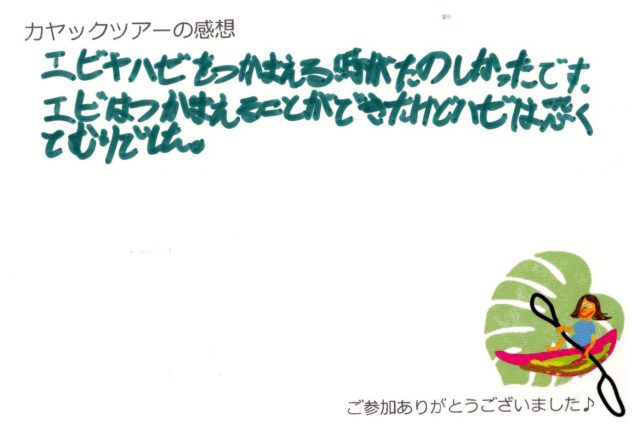 カヤックツアーの感想
エビヤハゼをつかまえる時がたのしかったです。
エビはつかまえることができたけどハゼは恐く
てむりでした。
ご参加ありがとうございました♪